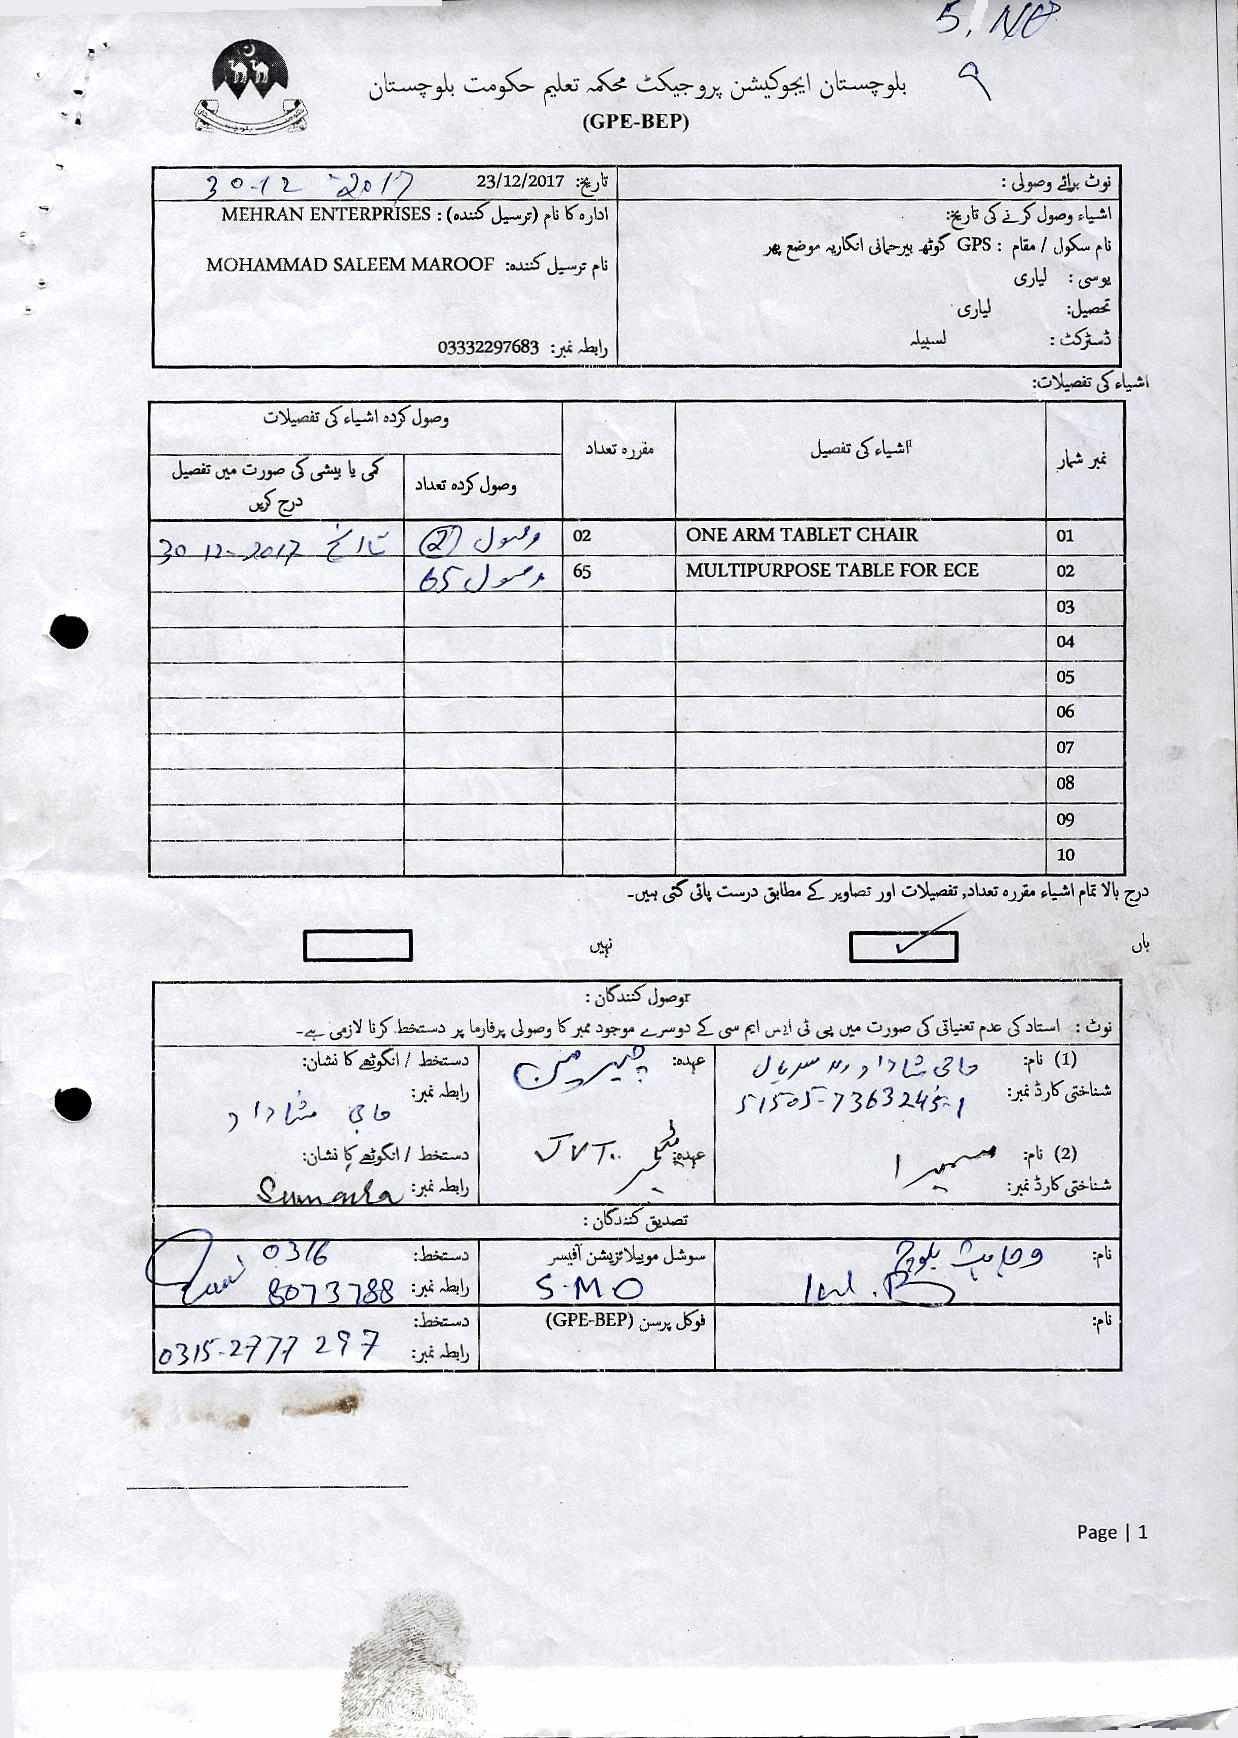 5. NO
٩
بلوچستان ایجوکیشن پروجیکٹ محکمہ تعلیم حکومت بلوچستان
(GPE-BEP)
نوٹ برائے وصولی :
تاریخ: 23/12/2017 30-12-2017
اشیاء وصول کرنے کی تاریخ:
ادارہ کا نام (ترسیل کنندہ) : MEHRAN ENTERPRISES
نام سکول / مقام : GPS گوٹھ بیرحمانی انگاریہ موضع پھر
نام ترسیل کنندہ: MOHAMMAD SALEEM MAROOF
یوسی : لیاری
تحصیل: لیاری
ڈسٹرکٹ : لسبیلہ
رابطہ نمبر: 03332297683
اشیاء کی تفصیلات:
نمبر شمار اشیاء کی تفصیل مقررہ تعداد وصول کردہ اشیاء کی تفصیلات
وصول کردہ تعداد کمی یا بیشی کی صورت میں تفصیل درج کریں
01 ONE ARM TABLET CHAIR 02 وصول 2 تاریخ 30-12-2017
02 MULTIPURPOSE TABLE FOR ECE 65 وصول 65
03
04
05
06
07
08
09
10
درج بالا تمام اشیاء مقررہ تعداد, تفصیلات اور تصاویر کے مطابق درست پائی گئی ہیں۔
ہاں نہیں
وصول کنندگان :
نوٹ : استاد کی عدم تعنیاتی کی صورت میں پی ٹی ایس ایم سی کے دوسرے موجود ممبر کا وصولی پرفارما پر دستخط کرنا لازمی ہے۔
(1) نام: حاجی شاداد عہدہ: چیرمین دستخط / انگوٹھے کا نشان:
شناختی کارڈ نمبر: 51505-7363245-1 رابطہ نمبر:
حاجی شاداد
(2) نام: سمیرا عہدہ: ٹیچر JVT دستخط / انگوٹھے کا نشان:
شناختی کارڈ نمبر: رابطہ نمبر: Sumaira
تصدیق کنندگان :
نام: بلوچ سوشل موبیلائزیشن آفیسر دستخط: 0316
S.M.O رابطہ نمبر: 8073788
نام: فوکل پرسن (GPE-BEP) دستخط:
رابطہ نمبر: 0315-2777297
Page | 1